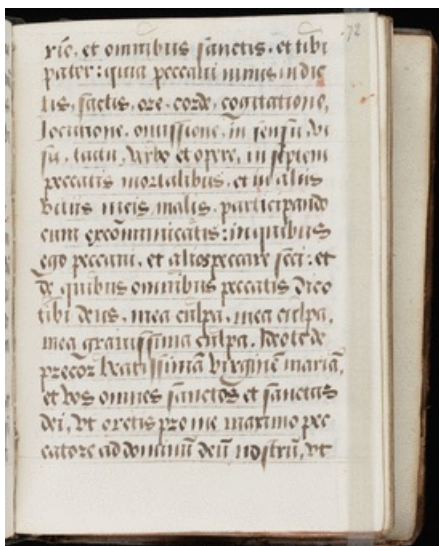 72
rie, et omnibus sanctis, et tibi
pater: quia peccaui nimis in dic
tis, factis, ore, corde, cogitatione,
locutione, omissione, in sensu, vi
su, tactu, verbo et opere, in septem
peccatis mortalibus, et in aliis
vitiis meis malis, participando
cum excōmunicatis: in quibus
ego peccaui, et alios peccare feci: et
de quibus omnibus peccatis dico
tibi deus, mea culpa, mea culpa,
mea grauissima culpa. Ideo de
precor beatissimā virginē mariā,
et vos omnes sanctos et sanctas
dei, vt oretis pro me maximo pec
catore ad dominū deū nostrū, vt